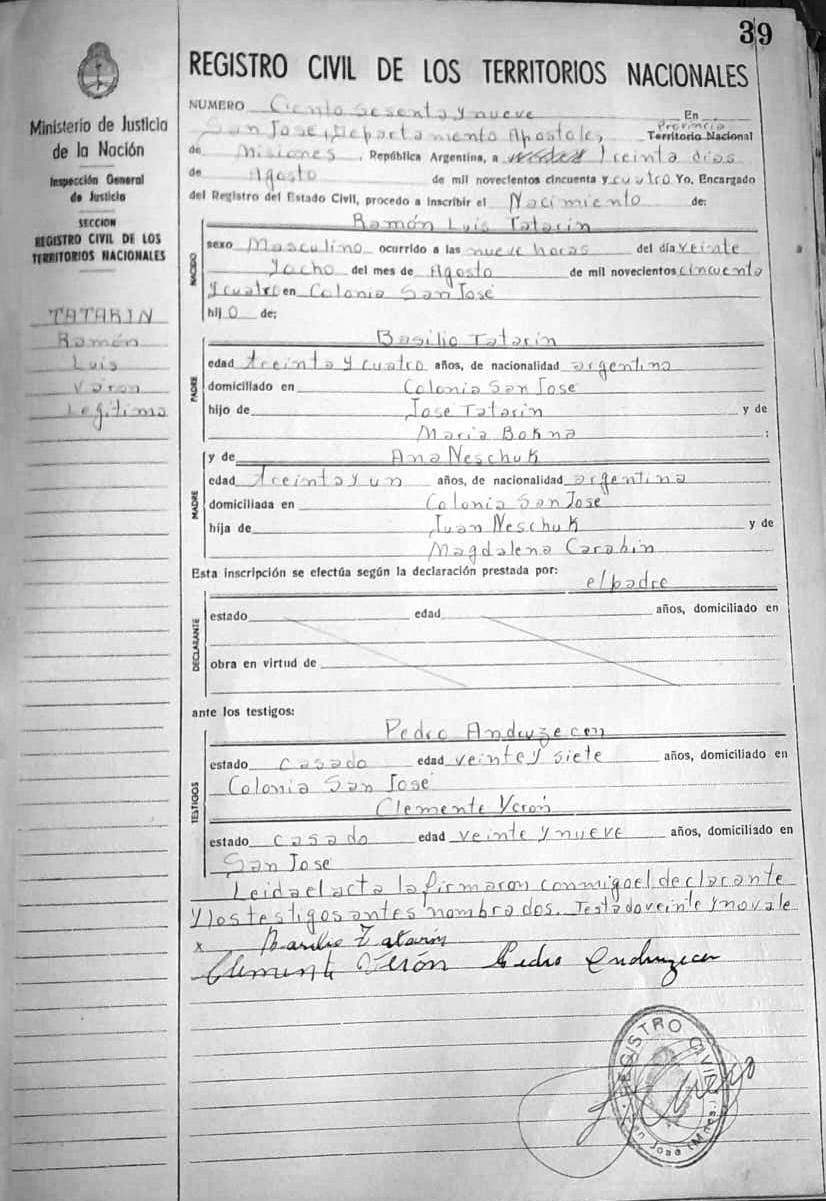 39
Ministerio de Justicia
de la Nación
Inspección General
de Justicia
SECCION
REGISTRO CIVIL DE LOS
TERRITORIOS NACIONALES
TATARIN
Ramón
Luis
Varon
Legítimo
REGISTRO CIVIL DE LOS TERRITORIOS NACIONALES
NUMERO Ciento sesenta y nueve En
San Jose, Departamento Apostoles, Provincia Territorio Nacional
de Misiones, República Argentina, a treinta dias
de Agosto de mil novecientos cincuenta y cuatro Yo, Encargado
del Registro del Estado Civil, procedo a inscribir el Nacimiento de:
NACIDO
Ramón Luis Tatarin
sexo Masculino ocurrido a las nueve horas del día veinte
y ocho del mes de Agosto de mil novecientos cincuenta
y cuatro en Colonia San Jose
hijo de:
PADRE
Basilio Tatarin
edad treinta y cuatro años, de nacionalidad argentina
domiciliado en Colonia San Jose
hijo de Jose Tatarin y de
Maria Bokna ;
MADRE
y de Ana Neschuk
edad treinta y un años, de nacionalidad argentina
domiciliada en Colonia San Jose
hija de Juan Neschuk y de
Magdalena Carabin
Esta inscripción se efectúa según la declaración prestada por:
el padre
DECLARANTE
estado edad años, domiciliado en
obra en virtud de
ante los testigos:
TESTIGOS
Pedro Anduzecen
estado casado edad veinte y siete años, domiciliado en
Colonia San José
Clemente Verón
estado casado edad veinte y nueve años, domiciliado en
San Jose
Leida el acta la firmaron conmigo el declarante
y los testigos antes nombrados. Testado veinte y no vale
x Basilio Tatarin
Clemente Verón Pedro
REGISTRO CIVIL
San José (Mnes.)